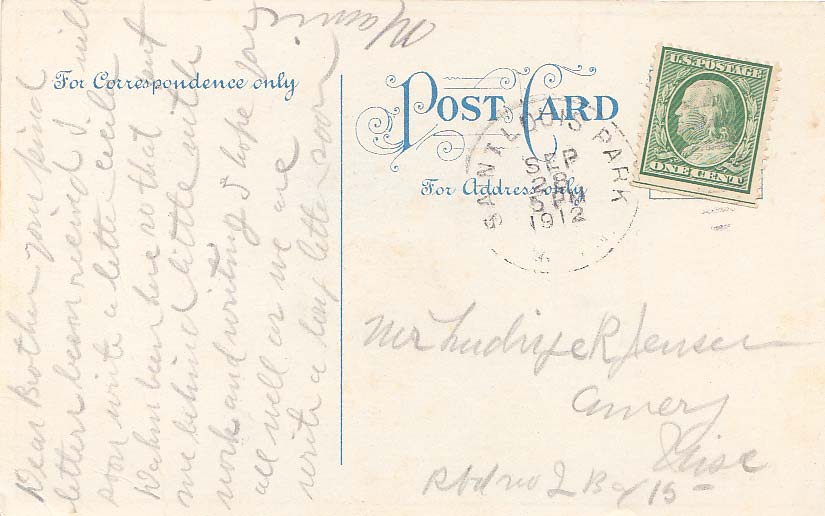 For Correspondence only
POST CARD
For Address only
U.S. POSTAGE
ONE CENT
SAINT LOUIS PARK
SEP
25
PM
1912
Dear Brother your kind
letter been received I will
soon write a letter Cecilia
Wahn been here so that put
me behind little with
work and writing I hope you
all well as we are
write a long letter soon
Mamie
Mr Ludvig R Jensen
Amery
Wisc
Rbd no 2 Box 15